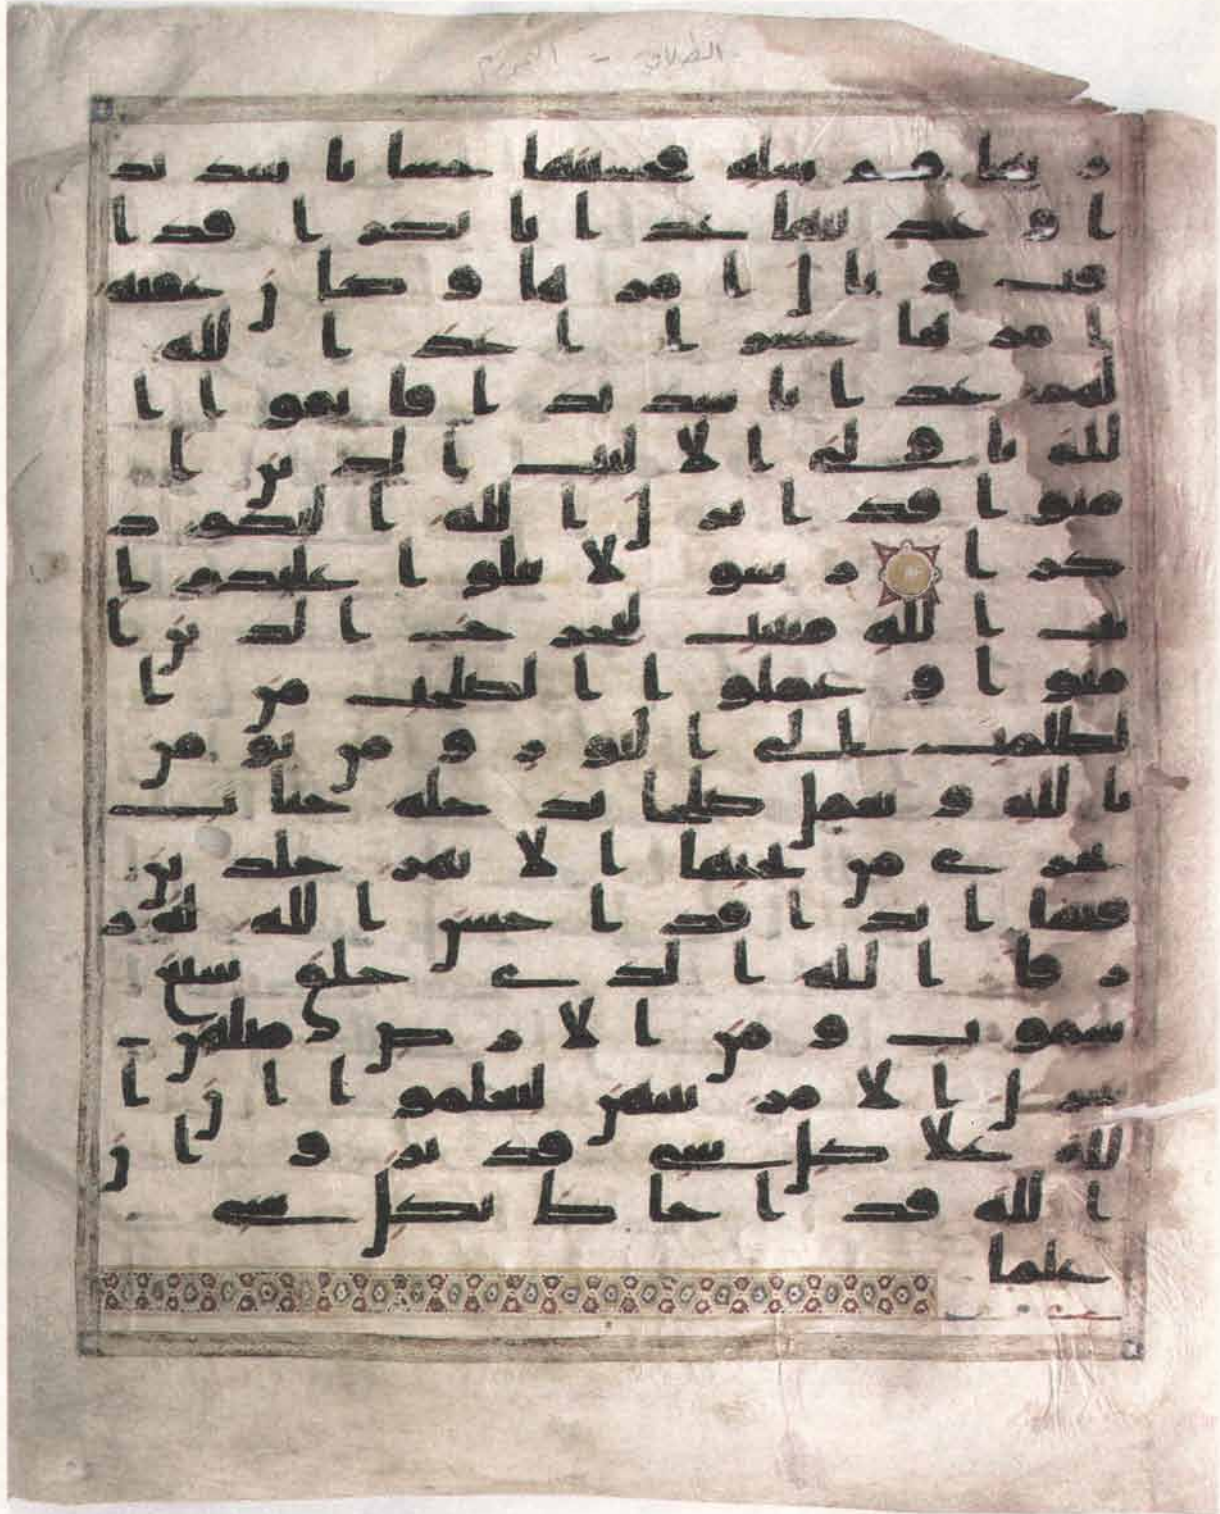 الطلاق - التحريم
ر بها و رسله فحسبنها حسابا شديد
ا و عذبنها عذابا نكرا فذا
قت و بال امرها و كان عقبة
امرها خسرا اعد الله
لهم عذابا شديدا فاتقوا ا
لله ياولي الالبب الذين ا
منوا قد انزل الله اليكم ذ
كرا رسولا يتلوا عليكم ا
يت الله مبينت ليخرج الذين ا
منوا و عملوا الصلحت من ا
لظلمت الى النور و من يومن
بالله و يعمل صلحا يدخله جنت
تجري من تحتها الانهر خلدين
فيها ابدا قد احسن الله له ر
زقا الله الذي خلق سبع
سموت و من الارض مثلهن يـ
تنزل الامر بينهن لتعلموا ان ا
لله علا كل شي قدير و ان
الله قد احاط بكل شي
علما